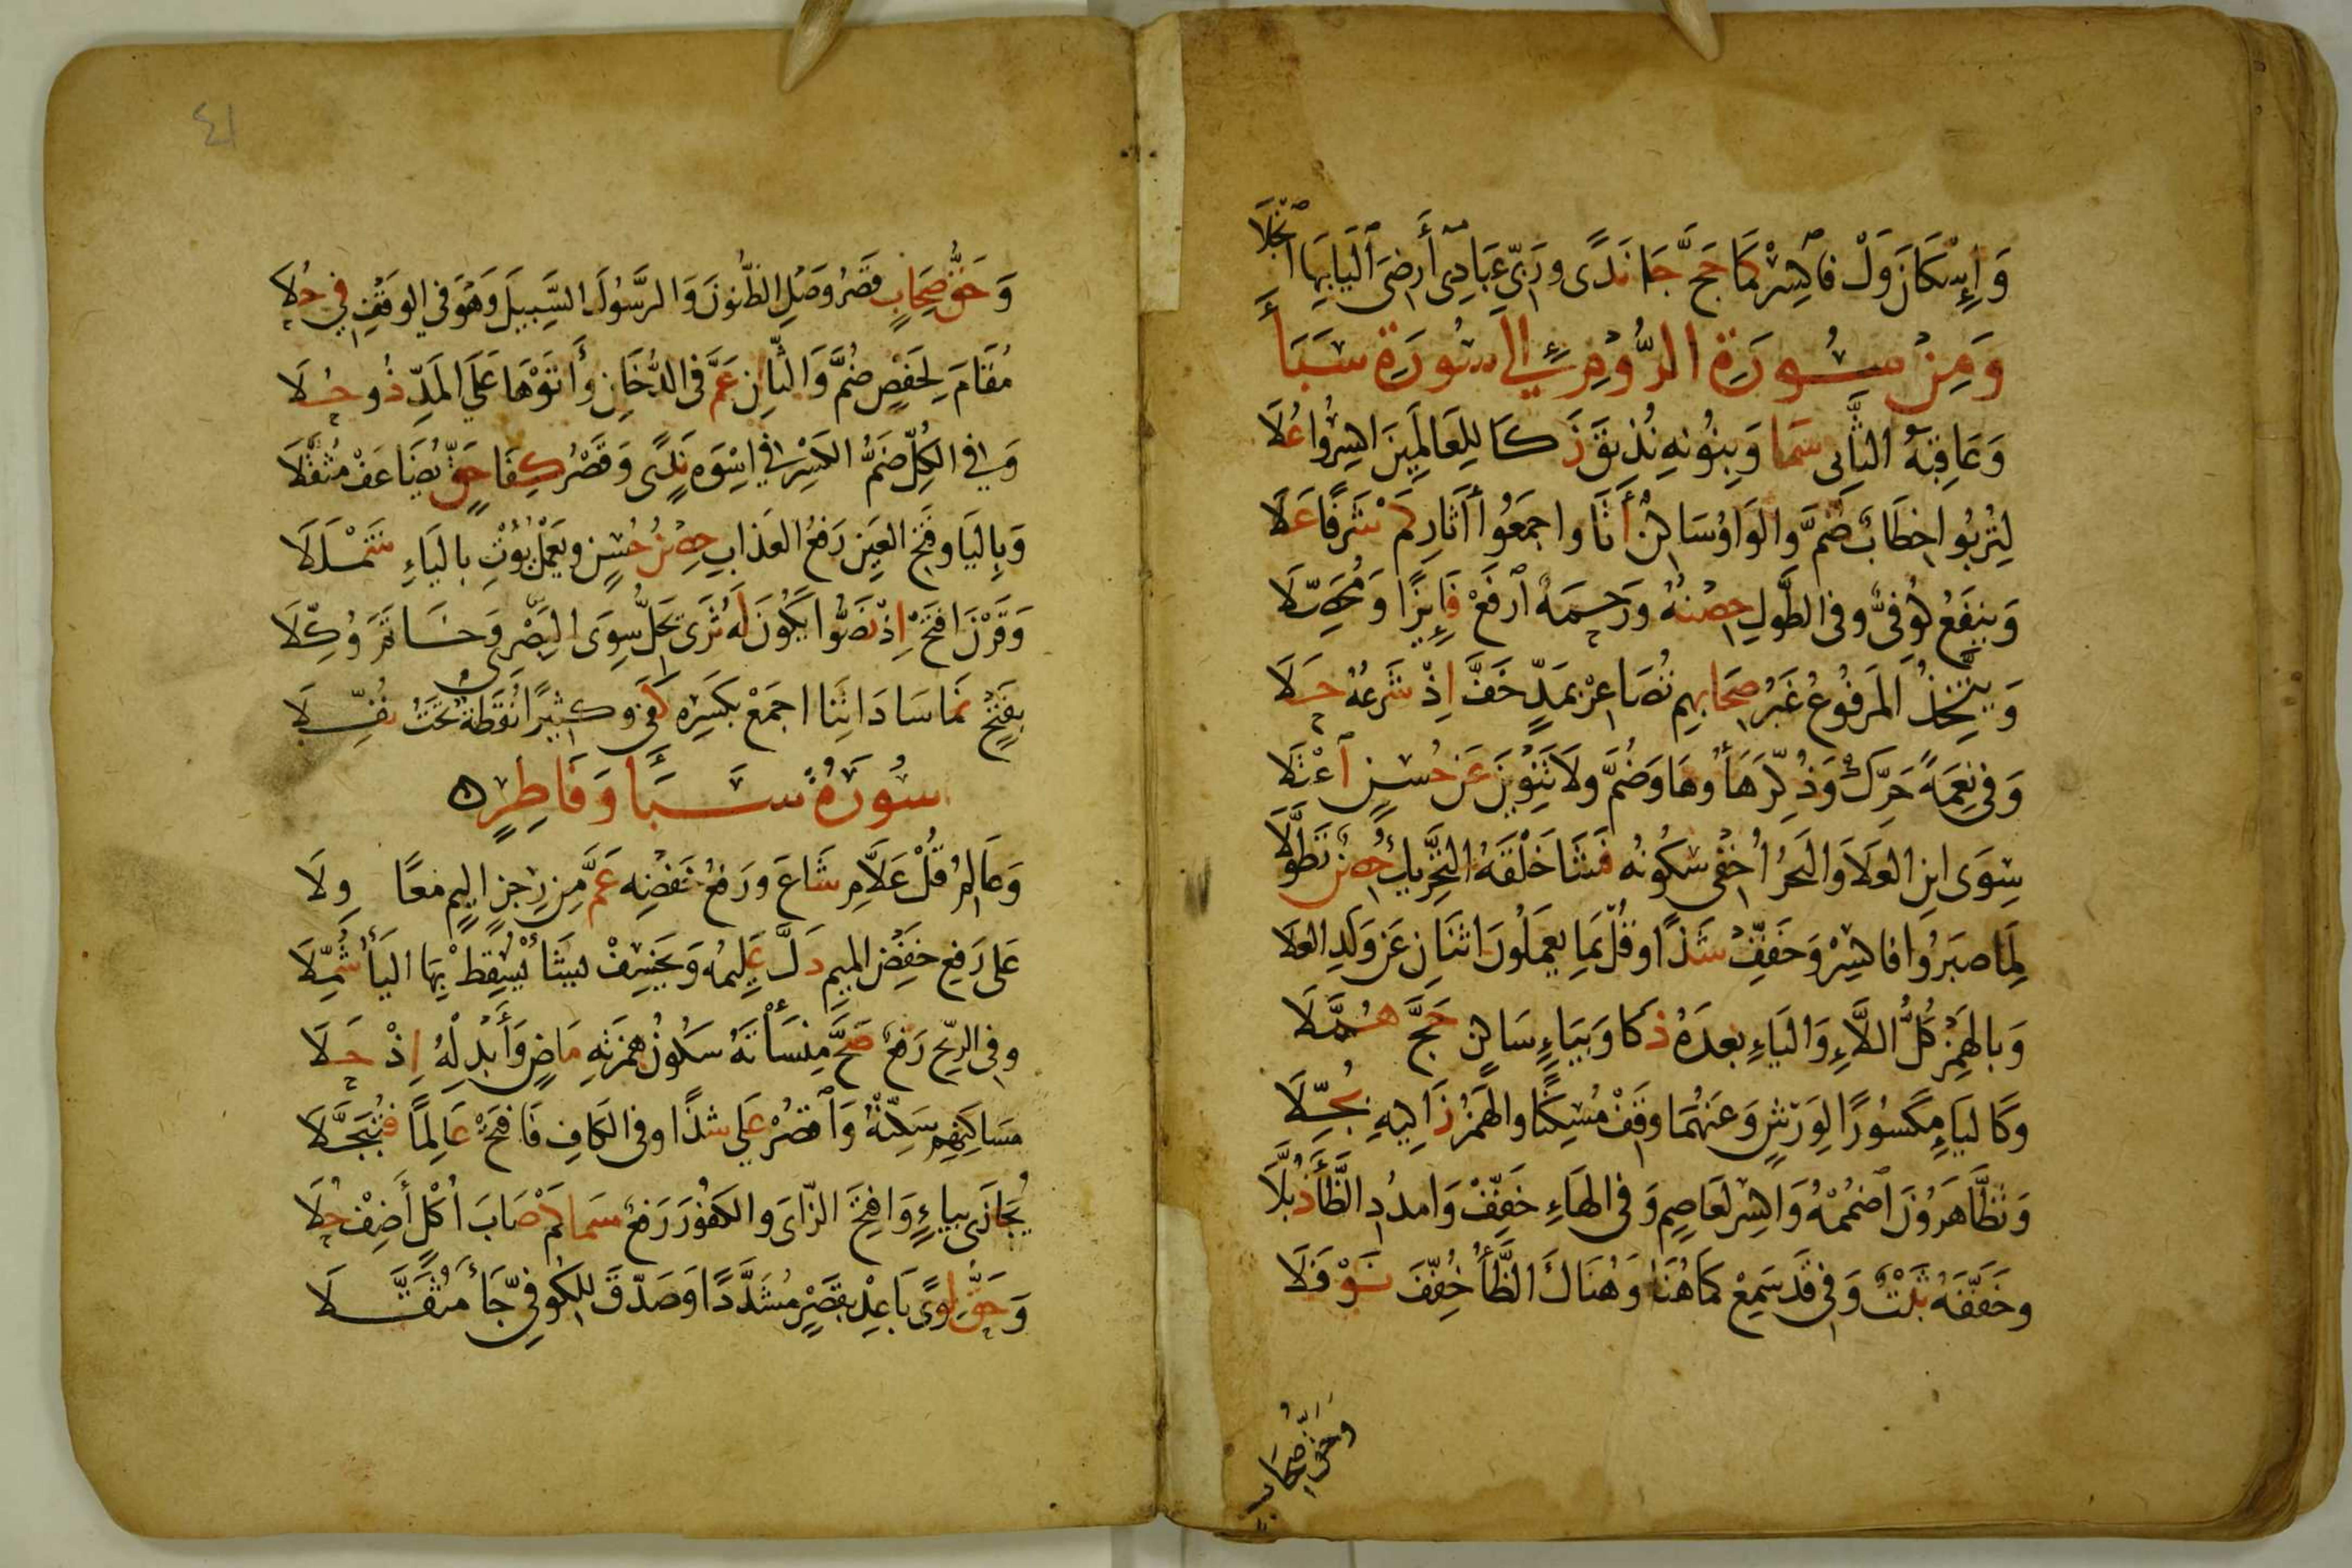 وَإِسْكَانُ وَلْ فَاكْسِرْ كَمَا حَجَّ جَا نَدًى وَرَبِّي عِبَادِي أَرْضِيَ ٱلْيَا بِهَا ٱنْجَلَا
وَمِنْ سُورَةِ الرُّومِ إِلَى سُورَةِ سَبَأ
وَعَاقِبَةُ الثَّانِي سَمَا وَبِنُونِهِ نُذِيقَ زَكَا لِلْعَالَمِينَ اكْسِرُوا عُلَا
لِتُرْبُوا خِطَابٌ ضُمَّ وَالْوَاوُ سَاكِنٌ أَتَا وَاجْمَعُوا آثَارِ كَمْ شَرَفًا عَلَا
وَيَنْفَعُ كُوفِيٌّ وَفِي الطَّوْلِ حِصْنُهُ وَرَحْمَةً ٱرْفَعْ فَايِزًا وَمُحَصِّلَا
وَيَتَّخِذُ الْمَرْفُوعُ غَيْرُ صِحَابِهِمْ تُصَاعِرْ بِمَدٍّ خَفَّ إِذْ شَرْعُهُ حَلَا
وَفِي نِعْمَةً حَرِّكْ وَذُكِّرَ هَاؤُهَا وَضُمَّ وَلَا تَنْوِينَ عَنْ حُسْنٍ ٱعْتَلَا
سِوَى ابْنِ الْعَلَا وَالْبَحْرُ أُخْفِي سُكُونُهُ فَشَا خَلْقَهُ التَّحْرِيكُ حِصْنٌ تَطَوَّلَا
لِمَا صَبَرُوا فَاكْسِرْ وَخَفِّفْ شَذًا وَقُلْ بِمَا يَعْمَلُونَ اثْنَانِ عَنْ وَلَدِ الْعَلَا
وَبِالْهَمْزِ كُلُّ اللَّاءِ وَالْيَاءِ بَعْدَهُ ذَكَا وَبِيَاءٍ سَاكِنٍ حَجَّ هُمَّلَا
وَكَالْيَاءِ مَكْسُورًا لِوَرْشٍ وَعَنْهُمَا وَقِفْ مُسْكِنًا وَالْهَمْزُ زَاكِيهِ بُجِّلَا
وَتَظَّاهَرُونَ ٱضْمُمْهُ وَاكْسِرْ لِعَاصِمٍ وَفِي الْهَاءِ خَفِّفْ وَامْدُدِ الظَّاءَ ذُبَّلَا
وَخَفَّفَهُ ثَبْتٌ وَفِي قَدْ سَمِعْ كَمَا هُنَا وَهُنَاكَ الظَّاءُ خُفِّفَ نَوْفَلَا
وَحَقُّ صِحَابٍ
٤١
وَحَقُّ صِحَابٍ قَصْرُ وَصْلِ الظُّنُونَ وَالرَّسُولَ السَّبِيلَ وَهْوَ فِي الْوَقْفِ فِي حُلَا
مَقَامَ لِحَفْصٍ ضُمَّ وَالثَّانِ عَمَّ فِي الدُّخَانِ وَأَتَوْهَا عَلَى الْمَدِّ ذُو حُلَا
وَفِي الْكُلِّ ضَمُّ الْكَسْرِ فِي إِسْوَةٌ نَدًى وَقَصْرُ كِفَا حَقٍّ يُضَاعَفْ مُثَقَّلَا
وَبِالْيَا وَفَتْحِ الْعَيْنِ رَفْعُ الْعَذَابِ حِصْنُ حُسْنٍ وَيَعْمَلْ يُؤْتِ بِالْيَاءِ شَمْلَلَا
وَقَرْنَ افْتَحْ إِذْ نَصُّوا يَكُونَ لَهُ ثَرَى يَحِلُّ سِوَى الْبَصْرِي وَخَاتَمَ وُكِّلَا
بِفَتْحٍ نَمَا سَادَاتِنَا اجْمَعْ بِكَسْرِهِ كَفَى وَكَثِيرًا نُقْطَةٌ تَحْتُ نُفِّلَا
سُورَةُ سَبَأ وَفَاطِرٍ ه
وَعَالِمُ قُلْ عَلَّامِ شَاعَ وَرَفْعُ خَفْضِهِ عَمَّ مِنْ رِجْزٍ أَلِيمٍ مَعًا وِلَا
عَلَى رَفْعِ خَفْضِ الْمِيمِ دَلَّ عَلِيمُهُ وَيَخْسِفْ يَشَأْ يُسْقِطْ بِهَا الْيَاءُ شُمِّلَا
وَفِي الرِّيحِ رَفْعٌ صَحَّ مِنْسَأْتَهُ سُكُونُ هَمْزَتِهِ مَاضٍ وَأَبْدِلْهُ إِذْ حَلَا
مَسَاكِنِهِمْ سَكِّنْهُ وَٱقْصُرْ عَلَى شَذًا وَفِي الْكَافِ فَافْتَحْ عَالِمًا فَتُبَجَّلَا
يُجَازَى بِيَاءٍ وَافْتَحِ الزَّايَ وَالْكَفُورَ رَفْعٌ سَمَا كَمْ صَابَ أُكْلٍ أَضِفْ حُلَا
وَحَقُّ لِوًى بَاعِدْ بِقَصْرٍ مُشَدَّدًا وَصَدَّقَ لِلْكُوفِيِّ جَاءَ مُثَقَّلَا